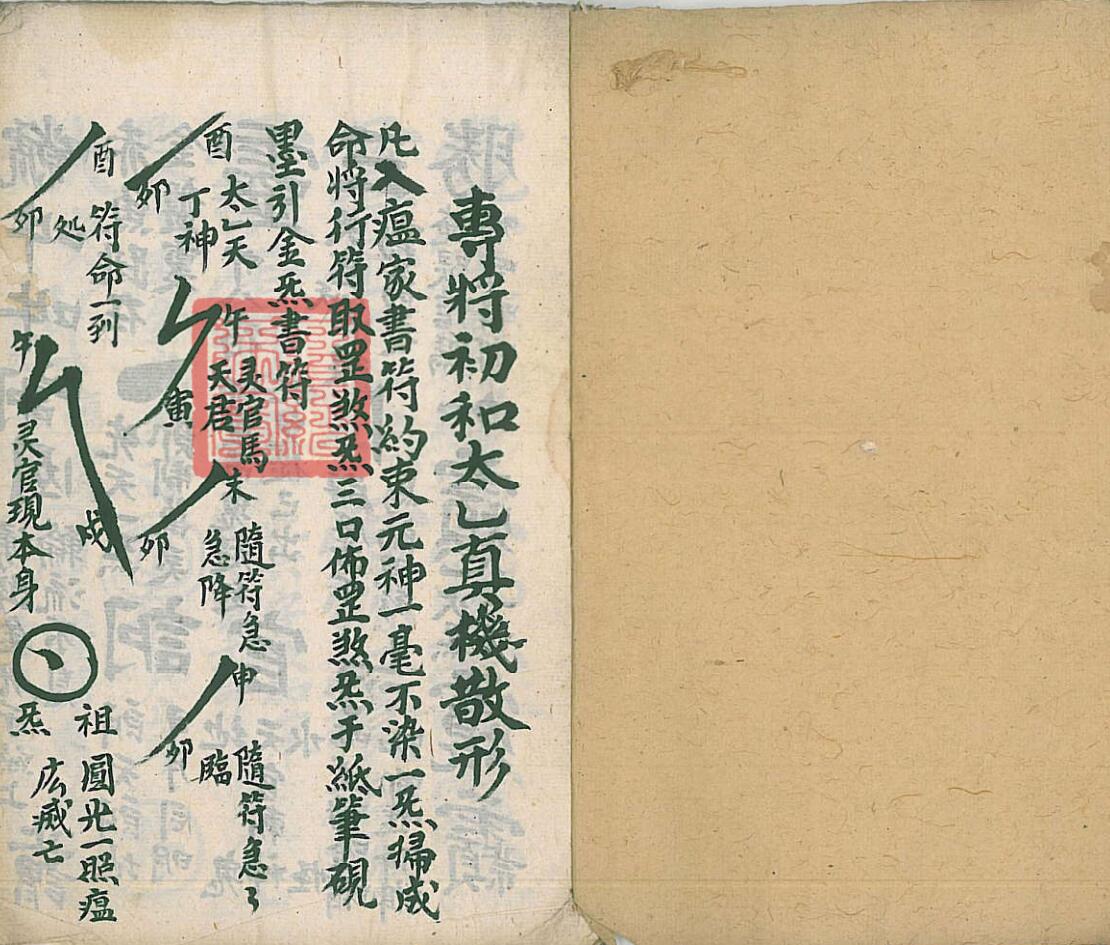 專將初和太乙真機散形
凡入瘟家書符約束元神一毫不染一炁掃成
命將行符取罡煞炁三口佈罡煞炁于紙筆硯
墨引金炁書符
酉
卯
太乙天
丁神
午
寅
灵官馬
天君
未
卯
隨符急
急降
申
卯
隨符急々
臨
酉
卯
符命一到
処
午
戌
灵官現本身
祖
炁
圓光一照瘟
広滅亡